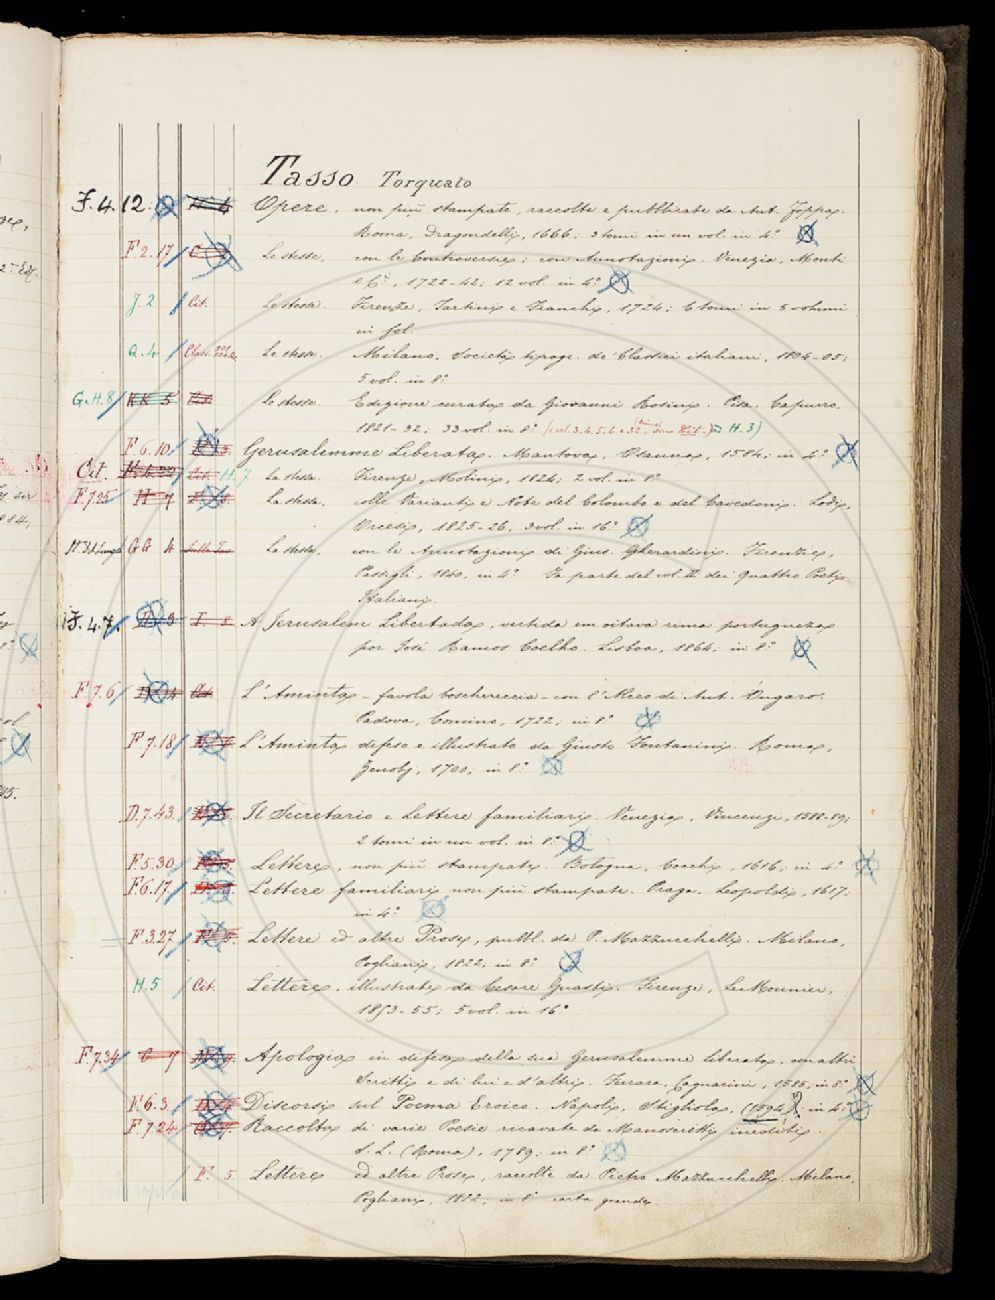 Tasso Torquato
F.4.12. Opere, non più stampate, raccolte e pubblicate da Ant. Foppa.
Roma, Dragondelli, 1666; 3 tomi in un vol. in 4º
F.2.17 Le stesse, con le Controversie; con Annotazioni. Venezia, Monti
e Cº, 1722-42; 12 vol. in 4º
J.2 Cit. Le stesse. Firenze, Tartini e Franchi, 1724; 6 tomi in 5 volumi
in fol.
Q.4 Le stesse. Milano, Società tipogr. de' Classici italiani, 1804-05;
5 vol. in 8º
G.H.8 KK 5 Le stesse. Edizione curata da Giovanni Rosini. Pisa, Capurro
1821-32; 33 vol. in 8º (i vol. 3.4.5.6 e 32 H.3)
F.6.10 Gerusalemme Liberata. Mantova, Osanna, 1584; in 4º
Cit. H.7 La stessa. Firenze, Molini, 1824; 2 vol. in 8º
F.7.25 H 7 La stessa, colle Varianti e Note del Colombo e del Cavedoni. Lodi,
Orcesi, 1825-26, 3 vol. in 16º
GG 4 La stessa, con le Annotazioni di Gius. Gherardini. Firenze,
Passigli, 1840, in 4º Fa parte del vol. II. dei Quattro Poeti
Italiani.
F.4.7. I. 8. A Jerusalem Libertada, vertida em oitava rima portugueza
por José Ramos Coelho. Lisboa, 1864; in 8º
F.7.6 L'Aminta - favola boschereccia - con l'Alceo di Ant. Ongaro.
Padova, Comino, 1722; in 8º
F.7.18 L'Aminta difeso e illustrato da Giusto Fontanini. Roma,
Zenobj, 1700; in 8º
D.7.43 Il Secretario e Lettere familiari. Venezia, Vincenzi, 1588-89;
2 tomi in un vol. in 8º
F.5.30 Lettere, non più stampate. Bologna, Cocchi, 1616; in 4º
F.6.17 Lettere familiari non più stampate. Praga, Leopoldi, 1617;
in 4º
F.3.27 Lettere ed altre Prose, pubbl. da P. Mazzucchelli. Milano,
Pogliani, 1822; in 8º
H.5 Cit. Lettere, illustrate da Cesare Guasti. Firenze, Le Monnier,
1853-55; 5 vol. in 16º
F.7.34 C 7 Apologia in difesa della sua Gerusalemme liberata, con altri
Scritti e di lui e d'altri. Ferrara, Cagnacini, 1585, in 8º
F.6.3 Discorsi sul Poema Eroico. Napoli, Stigliola, (1594)? in 4º
F.7.24 Raccolta di varie Poesie ricavate da Manoscritti inediti.
S. L. (Roma), 1789; in 8º
F. 5 Lettere ed altre Prose, raccolte da Pietro Mazzucchelli. Milano,
Pogliani, 1822, in 8º carta grande